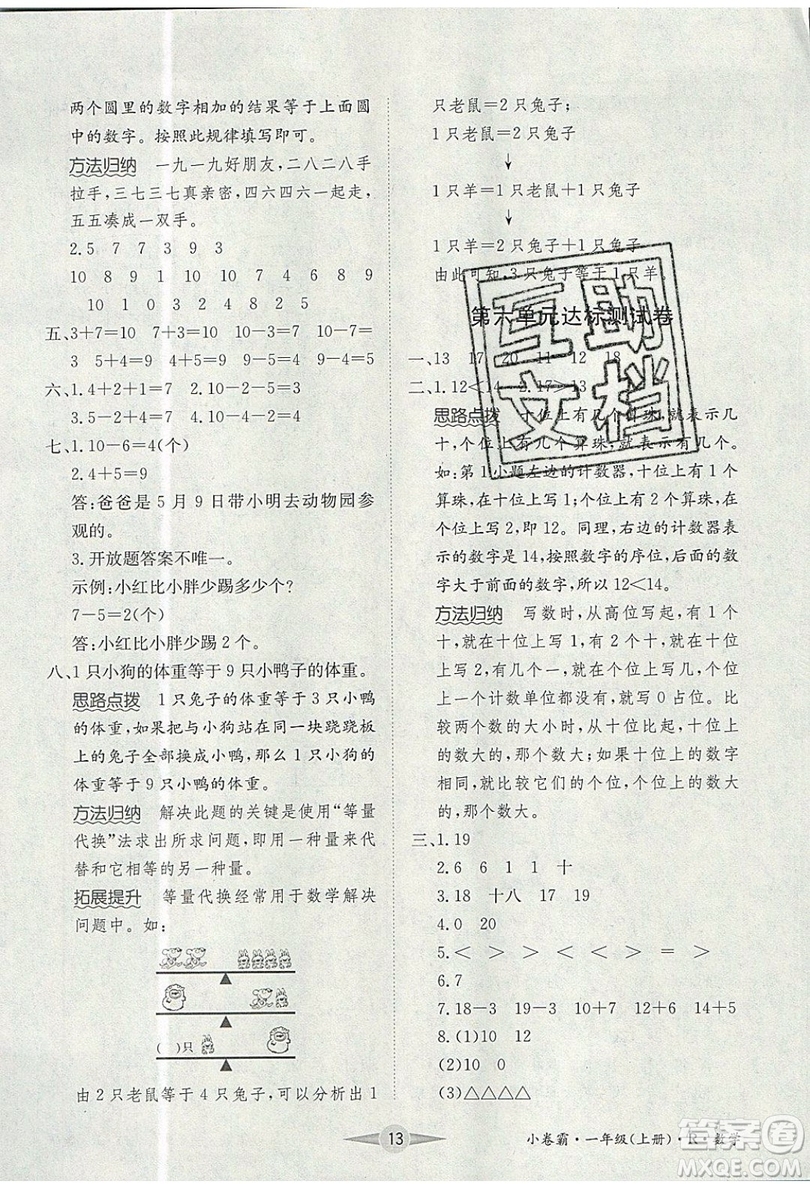 两个圆里的数字相加的结果等于上面圆
中的数字。按照此规律填写即可。
方法归纳 一九一九好朋友，二八二八手
拉手，三七三七真亲密，四六四六一起走，
五五凑成一双手。
2.5 7 7 3 9 3
10 8 9 1 10 7 10 10 9 9
10 1 0 3 4 8 2 5
五、3+7=10 7+2=9 10-3=7 10-7=
3 9-4=5 9-5=4 4+5=9 5+4=9
六、1.4+2+1=7 2.10-4-2=4
3.5-2+4=7 4.9-6+5=8
七、1.10-6=4(个)
2.4+5=9
答:爸爸是 5 月 9 日带小明去动物园参
观的。
3.开放题答案不唯一。
示例:小红比小胖少踢多少个?
7-5=2(个)
答:小红比小胖少踢 2 个。
八、1 只小狗的体重等于 9 只小鸭子的体重。
思路点拨 1 只兔子的体重等于 3 只小鸭
的体重,如果把与小狗站在同一块跷跷板
上的兔子全部换成小鸭,那么 1 只小狗的
体重等于 9 只小鸭的体重。
方法归纳 解决此题的关键是使用“等量
代换”法求出所求问题,即用一种量来代
替和它相等的另一种量。
拓展提升 等量代换经常用于数学解决
问题中。如:
( )只
由 2 只老鼠等于 4 只兔子,可以分析出 1
只老鼠=2 只兔子;
1 只老鼠=2 只兔子
↓
1 只羊=1 只老鼠+1 只兔子
↓
1 只羊=2 只兔子+1 只兔子
由此可知,3 只兔子等于 1 只羊。
第六单元达标测试卷
一、13 17 20 11 12 18
二、1.12<14 2.17>13
思路点拨 十位上有几个算珠,就表示几
十,个位上有几个算珠,就表示几个一。
如:第 1 小题左边的计数器,十位上有 1 个
算珠,在十位上写 1,个位上有 2 个算珠,
在个位上写 2,即 12。同理,右边的计数器表
示的数字是 14,按照数字的序位,后面的数
字大于前面的数字,所以 12<14。
方法归纳 写数时,从高位写起,有 1 个
十,就在十位上写 1,有 2 个十,就在十位
上写 2,有几个一,就在个位上写几,哪一
个计数单位上一个计数单位都没有,
上一个计数单位都没有,就写 0 占位。比
较两个数的大小时,从十位比起,十位上的
数大的,那个数就大;如果十位上的数字
相同,就比较它们的个位,个位上的数大
的,那个数大。
三、1.19
2.6 6 1 1 十
3.18 十八 17 19
4.0 20
5.< > > < < > = >
6.7
7.18-3 19-3 10+7 12+6 14+5
8.(1)10 12
(2)10 0
(3)△△△△
互助
文档
13
小卷霸·一年级(上册)·R·数学
答案圈
MXQE.COM